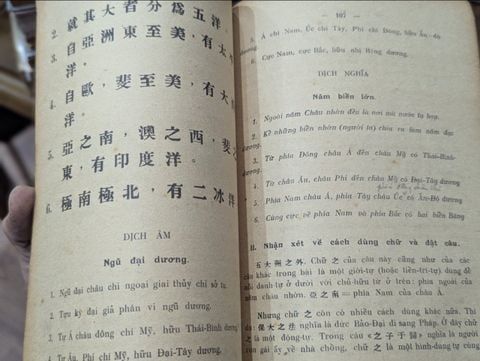 2. 就其大者分爲五洋。
3. 自亞洲東至美,有太
洋。
4. 自歐,斐至美,有大
洋。
5. 亞之南,澳之西,斐之
東,有印度洋。
6. 極南極北,有二冰洋
DỊCH ÂM
Ngũ đại dương.
1. Ngũ đại châu chi ngoại giai thủy chỉ sở tụ.
2. Tựu kỳ đại giả phân vi ngũ dương.
3. Tự Á châu đông chí Mỹ, hữu Thái-Bình dương.
4. Tự Âu, Phi chí Mỹ, hữu Đại-Tây dương.
— 107 —
5. Á chi Nam, Úc chi Tây, Phi chi Đông, hữu Ấn-độ
dương.
6. Cực Nam, cực Bắc, hữu nhị Băng dương.
DỊCH NGHĨA
Năm biển lớn.
1. Ngoài năm Châu nhớn đều là nơi mà nước tụ họp.
2. Kể những biển nhớn (người ta) chia ra làm năm đại
dương.
3. Từ phía Đông châu Á đến châu Mỹ có Thái-Bình-
dương.
4. Từ châu Âu, châu Phi đến châu Mỹ có Đại-Tây dương
5. Phía Nam châu Á, phía Tây châu Úc có Ấn-Độ dương
6. Cùng cực về phía Nam và phía Bắc có hai biển Băng
II. Nhận xét về cách dùng chữ và đặt câu.
五大州之外. Chữ 之 của câu này cũng như của các
câu khác trong bài là một giới-tự (hoặc liên-trí-tự) dùng để
nối danh-tự ở dưới với chủ-hữu từ ở trên: phía ngoài của
năm châu nhớn. 亞之南 = phía Nam của châu Á.
Nhưng chữ 之 còn có nhiều cách dùng khác nữa. Thí
dụ: 保大之法 nghĩa là đức Bảo-Đại đi sang Pháp. Ở đây chữ
之 là một động-tự. Trong câu «之子于歸» nghĩa là người
con gái ấy về nhà chồng, chữ 之 là một hình-dung-tự cùng